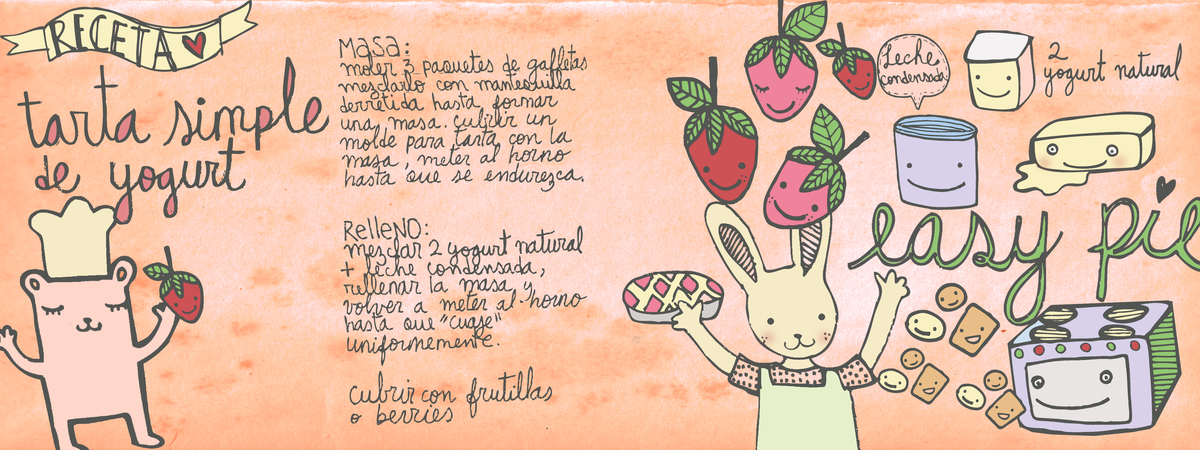 RECETA
tarta simple
de yogurt
Masa:
moler 3 paquetes de galletas
mezclarlo con mantequilla
derretida hasta formar
una masa. Cubrir un
molde para tarta con la
masa, meter al horno
hasta que se endurezca.
RelleNO:
mezclar 2 yogurt natural
+ leche condensada,
rellenar la masa y
volver a meter al horno
hasta que "cuaje"
uniformemente.
Cubrir con frutillas
o berries
Leche
condensada
2
yogurt natural
easy pie